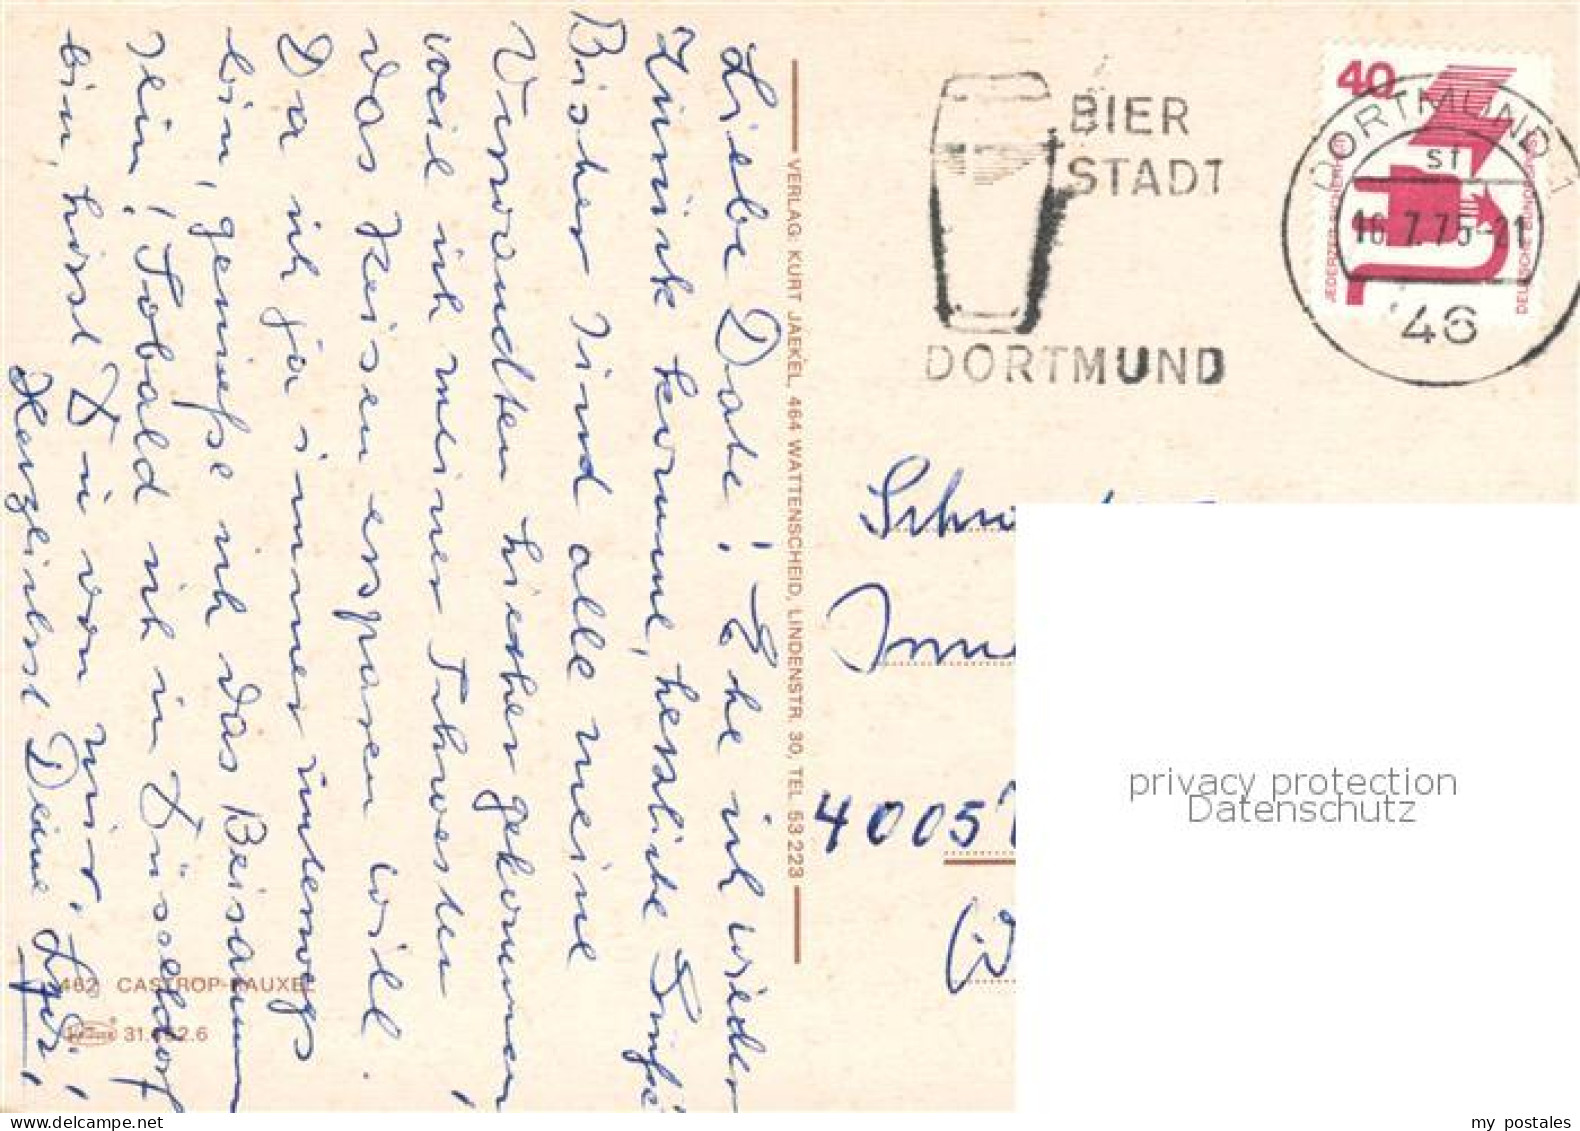 Liebe Date! Ehe ich wieder
Zurück komme, herzliche Grüße
Bisher sind alle meine
Verwandten hierher gekommen,
weil ich meiner Schwester
das Reisen ersparen will.
Da ich ja immer unterwegs
bin, genieße ich das Beisammen
sein, sobald ich in Düsseldorf
bin, hörst Du von mir.
Herzlichst Deine
VERLAG: KURT JAEKEL, 464 WATTENSCHEID, LINDENSTR. 30, TEL. 53 223
462 CASTROP-RAUXEL
BIER
STADT
DORTMUND
40
JEDERZEIT SICHERHEIT
DEUTSCHE BUNDESPOST
DORTMUND 1
sf
16.7.75-21
46
4005
privacy protection
Datenschutz
my postales